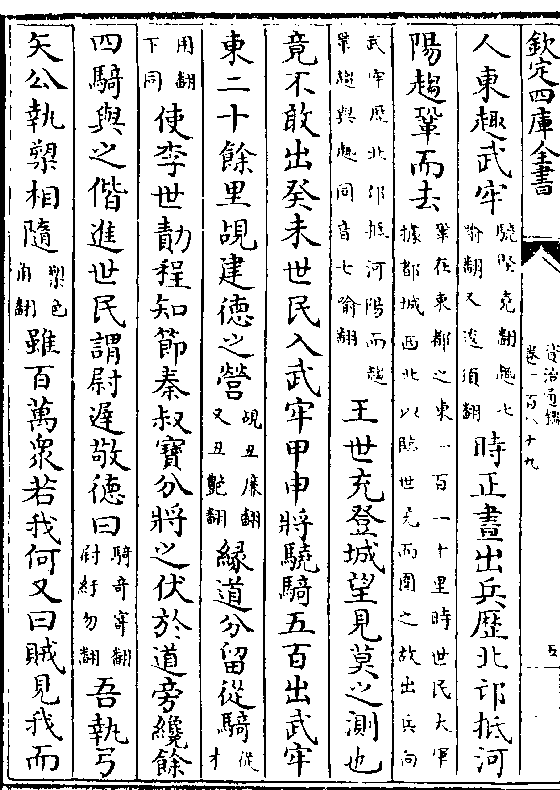 欽定四庫全書
資治通鑑
卷一百八十九
五
人東趣武牢驍堅堯翻趣七喻翻又逡須翻時正晝出兵歴北邙抵河
陽趨鞏而去鞏在東都之東一百一十里時世民大軍據都城西北以臨世充而圍之故出兵向
武牢歴北邙抵河陽而趨鞏趨與趣同音七喻翻王世充登城望見莫之測也
竟不敢出癸未世民入武牢甲申將驍騎五百出武牢
東二十餘里覘建德之營覘丑廉翻又丑艶翻縁道分留從騎從才
用翻下同使李世勣程知節秦叔寶分將之伏於道旁纔餘
四騎與之偕進世民謂尉遲敬德曰騎奇寄翻尉紆勿翻吾執弓
矢公執槊相隨槊色角翻雖百萬衆若我何又曰賊見我而